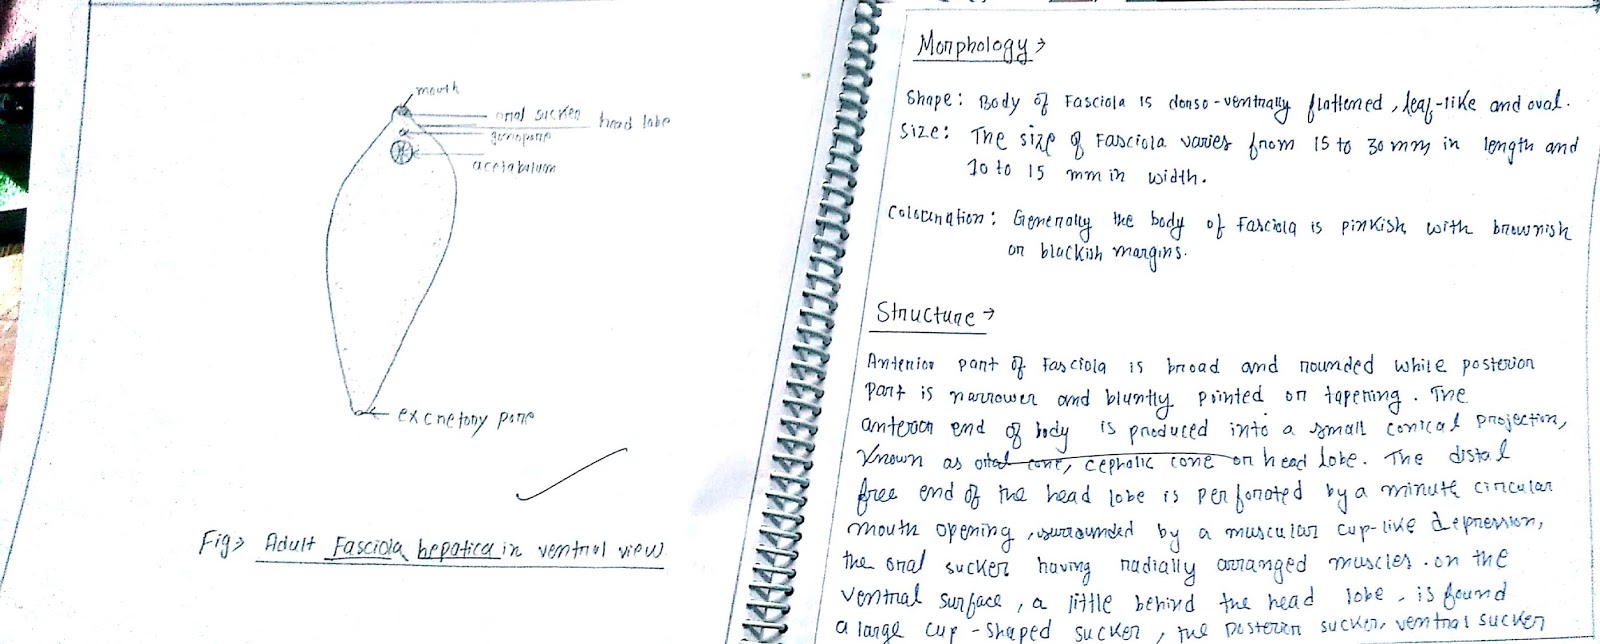 mouth
oral sucker
head lobe
gonopore
acetabulum
excretory pore
Fig→ Adult Fasciola hepatica in ventral view
Morphology →
Shape: Body of Fasciola is dorso-ventrally flattened, leaf-like and oval.
Size: The size of Fasciola varies from 15 to 30 mm in length and
10 to 15 mm in width.
Colouration: Generally the body of Fasciola is pinkish with brownish
or blackish margins.
Structure →
Anterior part of Fasciola is broad and rounded while posterior
part is narrower and bluntly pointed or tapering. The
anterior end of body is produced into a small conical projection,
known as oral cone, cephalic cone or head lobe. The distal
free end of the head lobe is perforated by a minute circular
mouth opening, surrounded by a muscular cup-like depression,
the oral sucker having radially arranged muscles. on the
ventral surface, a little behind the head lobe, is found
a large cup-shaped sucker, the posterior sucker, ventral sucker